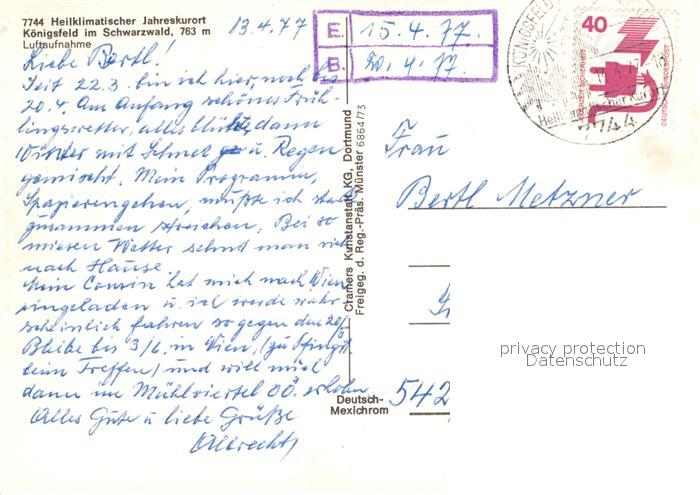 7744 Heilklimatischer Jahreskurort
Königsfeld im Schwarzwald, 763 m
Luftaufnahme
13.4.77
Liebe Bertl!
Seit 22.3. bin ich hier, noch bis
20.4. Am Anfang schönes Früh-
lingswetter, alles blühte, dann
Winter mit Schnee u. Regen
gemischt. Mein Programm,
Spazierengehen, mußte ich stark
zusammen streichen. Bei so
miesen Wetter sehnt man sich
nach Hause.
Mein Cousin hat mich nach Wien
eingeladen u. ich werde wahr-
scheinlich fahren so gegen den 20/5
Bleibe bis 3/6. in Wien, (zu Pfingst
beim Treffen) und will mich
dann im Mühlviertel OÖ. erholen
Alles Gute u liebe Grüße
Albrecht
E. 15.4.77.
B. 20.4.77.
Ctamers Kunstanstalt KG, Dortmund
Freigeg. d. Reg.-Präs. Münster 6864/73
Deutsch-
Mexichrom
KÖNIGSFELD
7744
40
DEUTSCHE BUNDESPOST
Frau
Bertl Metzner
542
privacy protection
Datenschutz